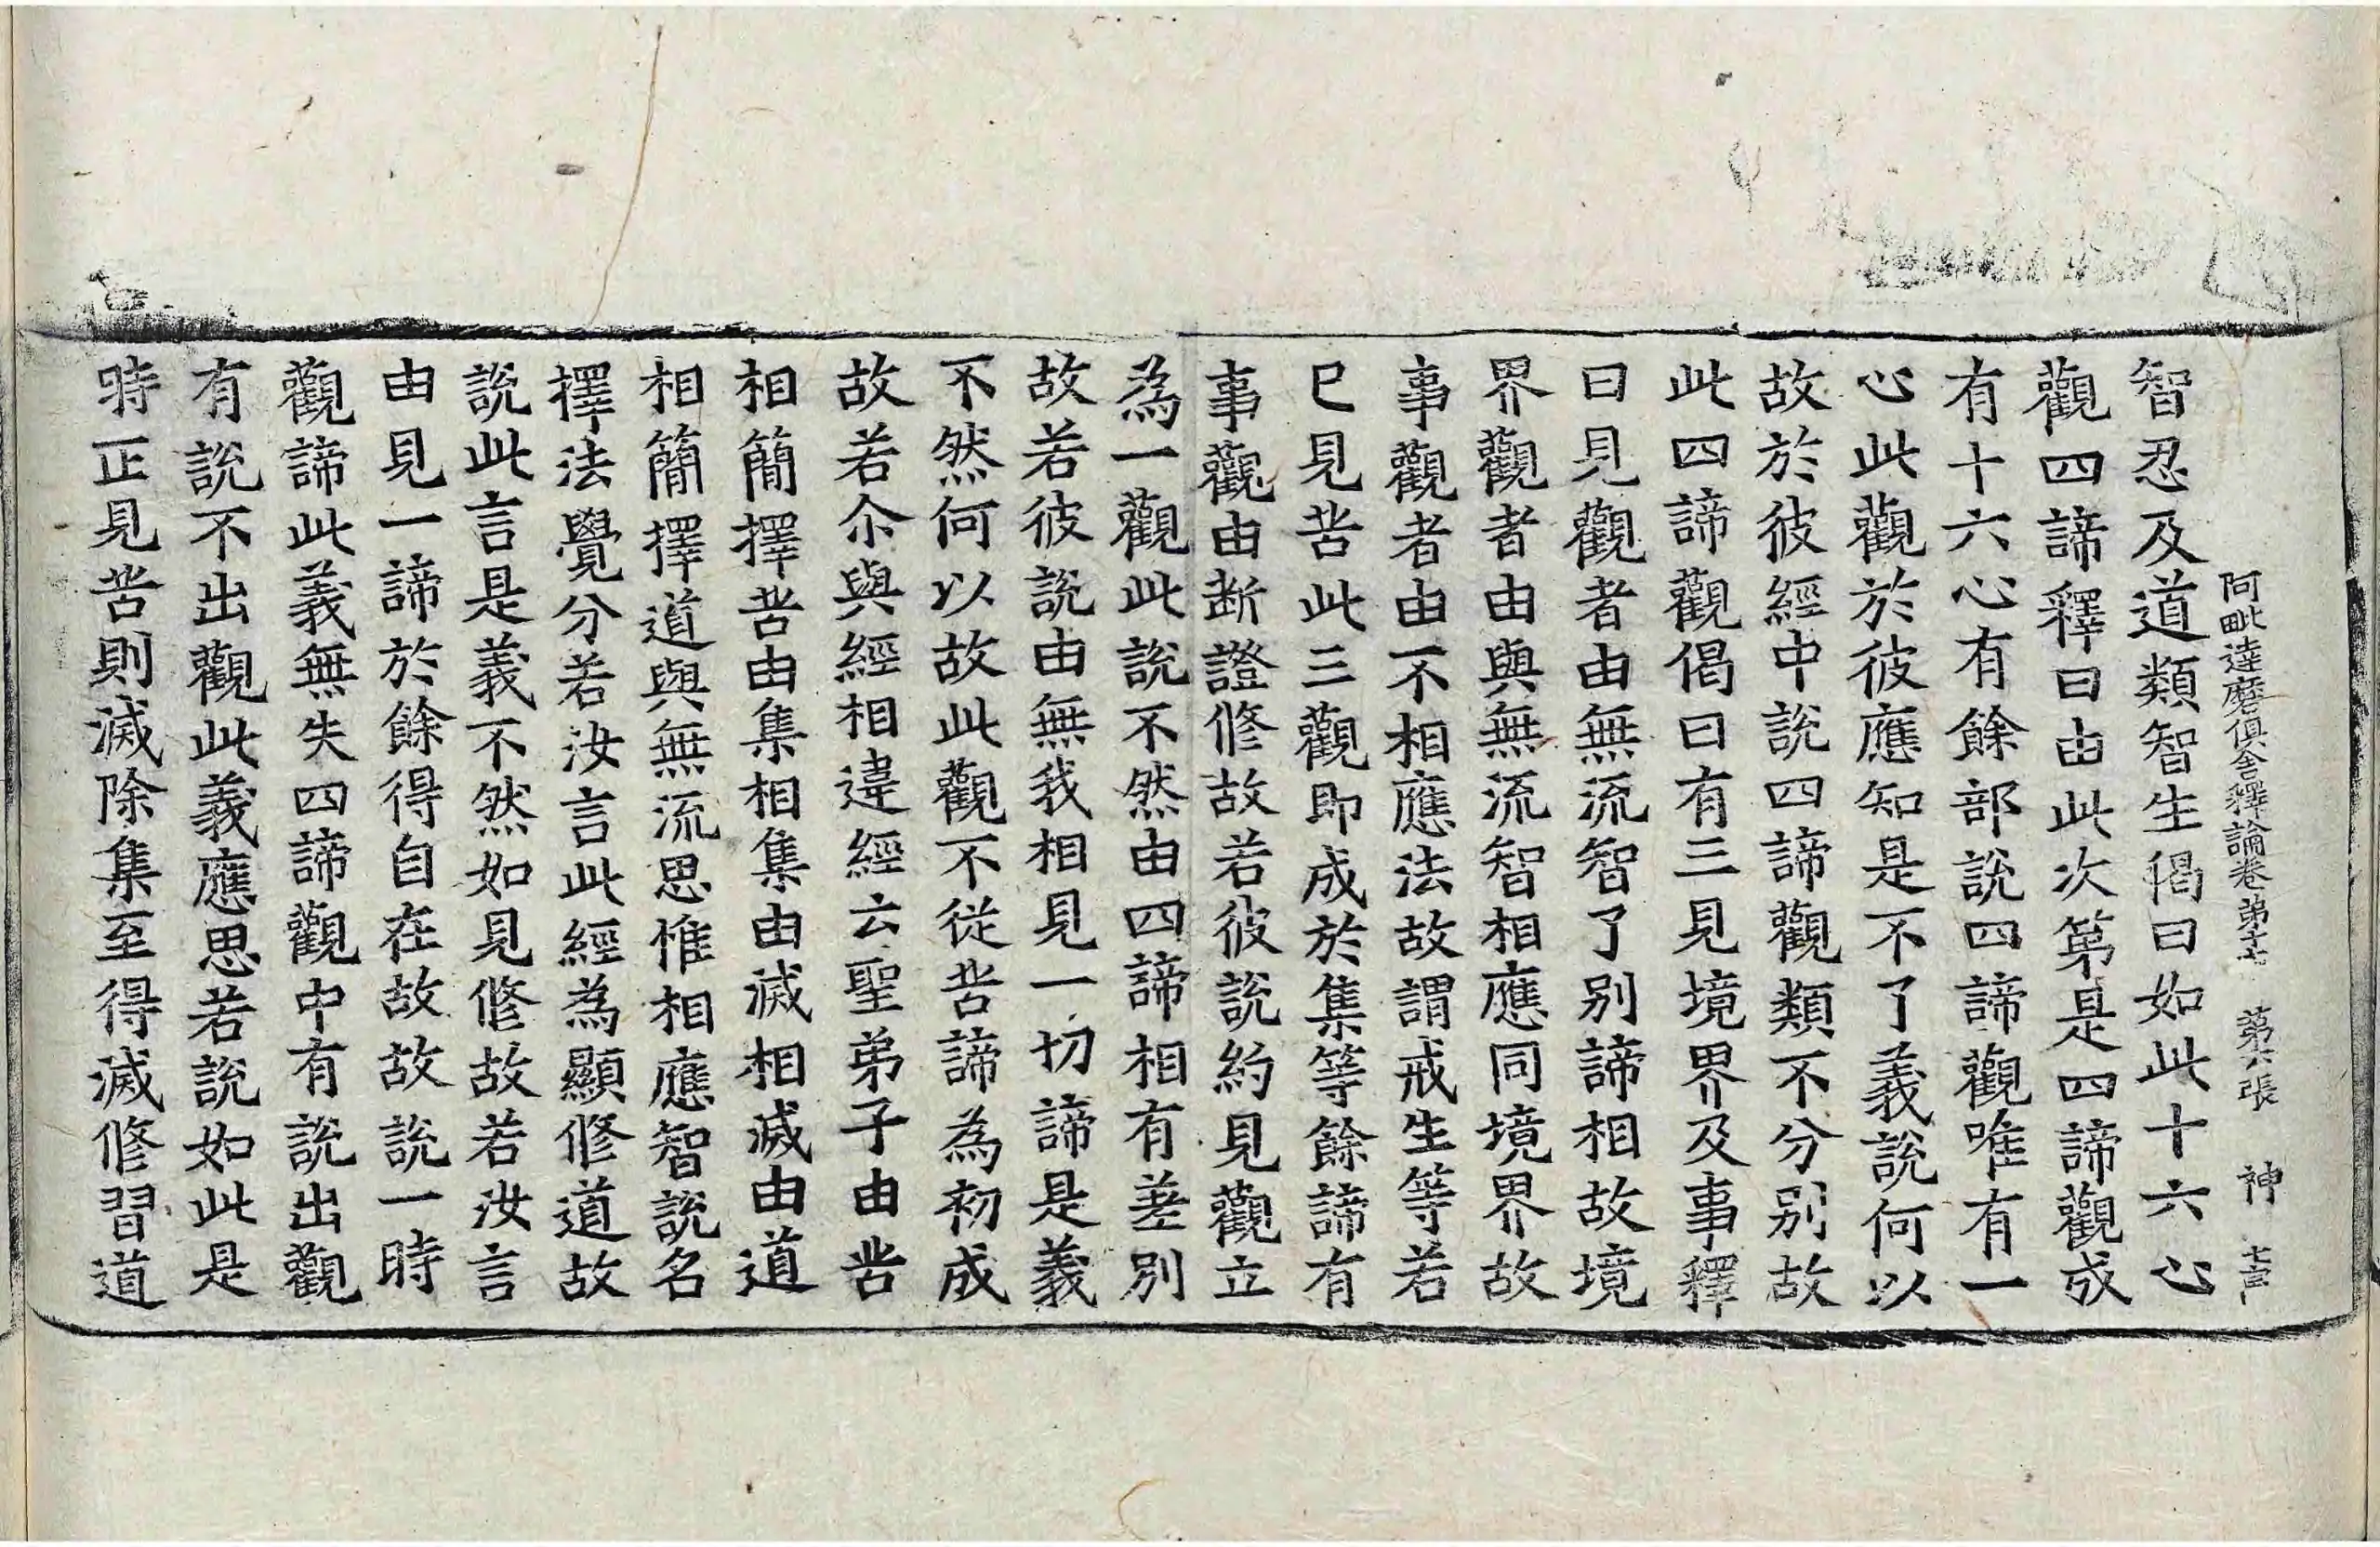 阿毗達磨俱舍釋論卷第十七　第六張　神
智忍及道類智生偈曰如此十六心
觀四諦釋曰由此次第是四諦觀成
有十六心有餘部說四諦觀唯有一
心此觀於彼應知是不了義說何以
故於彼經中說四諦觀類不分別故
此四諦觀偈曰有三見境界及事釋
曰見觀者由無流智了別諦相故境
界觀者由與無流智相應同境界故
事觀者由不相應法故謂戒生等若
已見苦此三觀即成於集等餘諦有
事觀由斷證修故若彼說約見觀立
為一觀此說不然由四諦相有差別
故若彼說由無我相見一切諦是義
不然何以故此觀不從苦諦為初成
故若尒與經相違經云聖弟子由苦
相簡擇苦由集相集由滅相滅由道
相簡擇道與無流思惟相應智說名
擇法覺分若汝言此經為顯修道故
說此言是義不然如見修故若汝言
由見一諦於餘得自在故故說一時
觀諦此義無失四諦觀中有說出觀
有說不出觀此義應思若說如此是
時正見苦則滅除集至得滅修習道